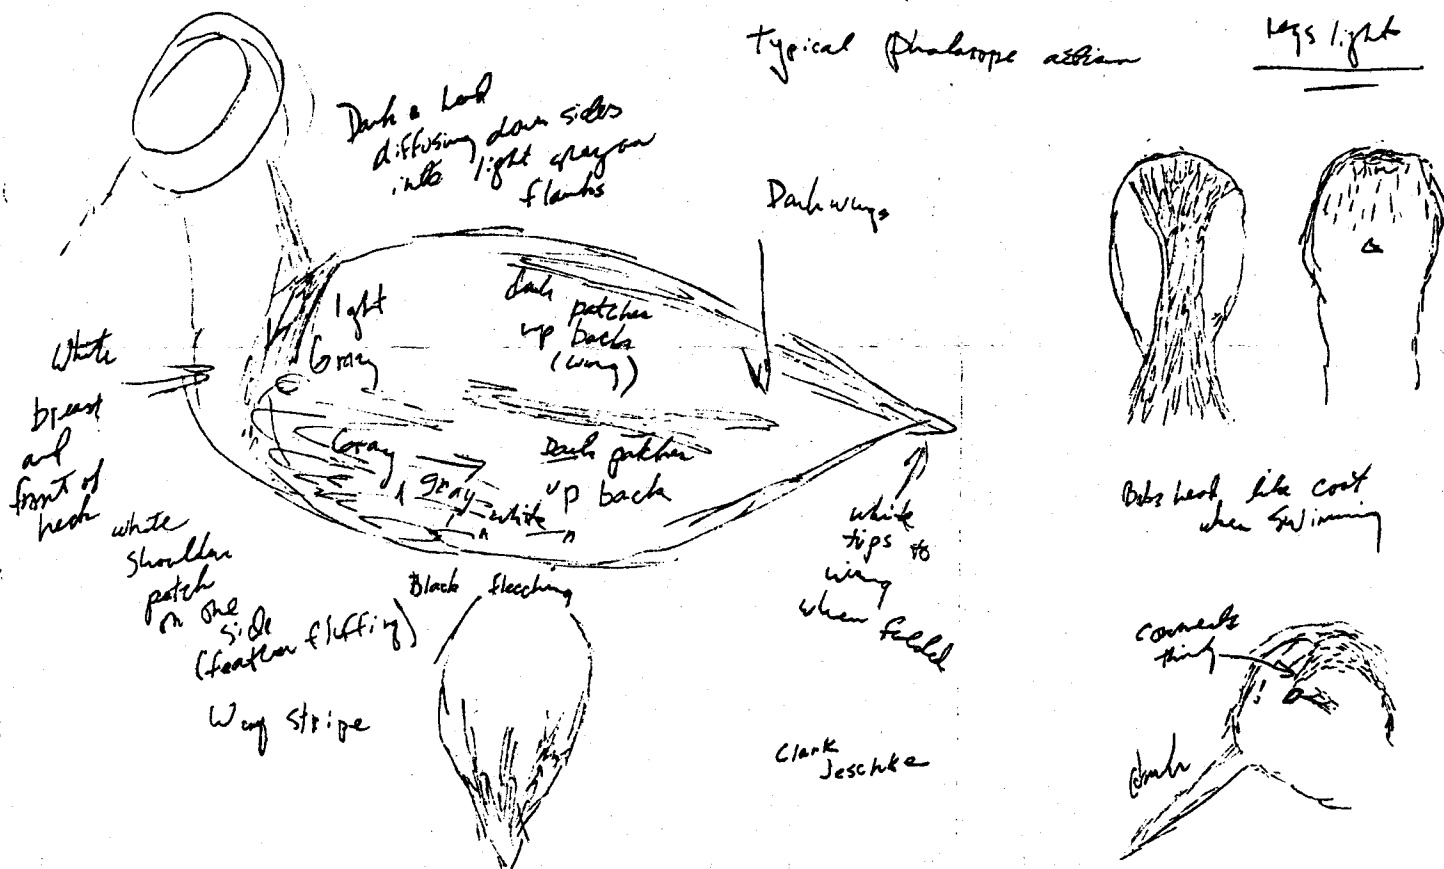 Typical phalarope action
legs light
Dark head
diffusing down sides
into light gray on
flanks
Dark wings
light
Gray
dark
patches
up back
(wing)
White
breast
and
front of
neck
Gray
gray
white
Dark patches
up back
white
shoulder
patch
on one
side
(feather fluffing)
Black flecking
white
tips to
wing
when folded
Bobs head like coot
when swimming
Wing stripe
connects
thinly
dark
Clark
Jeschke